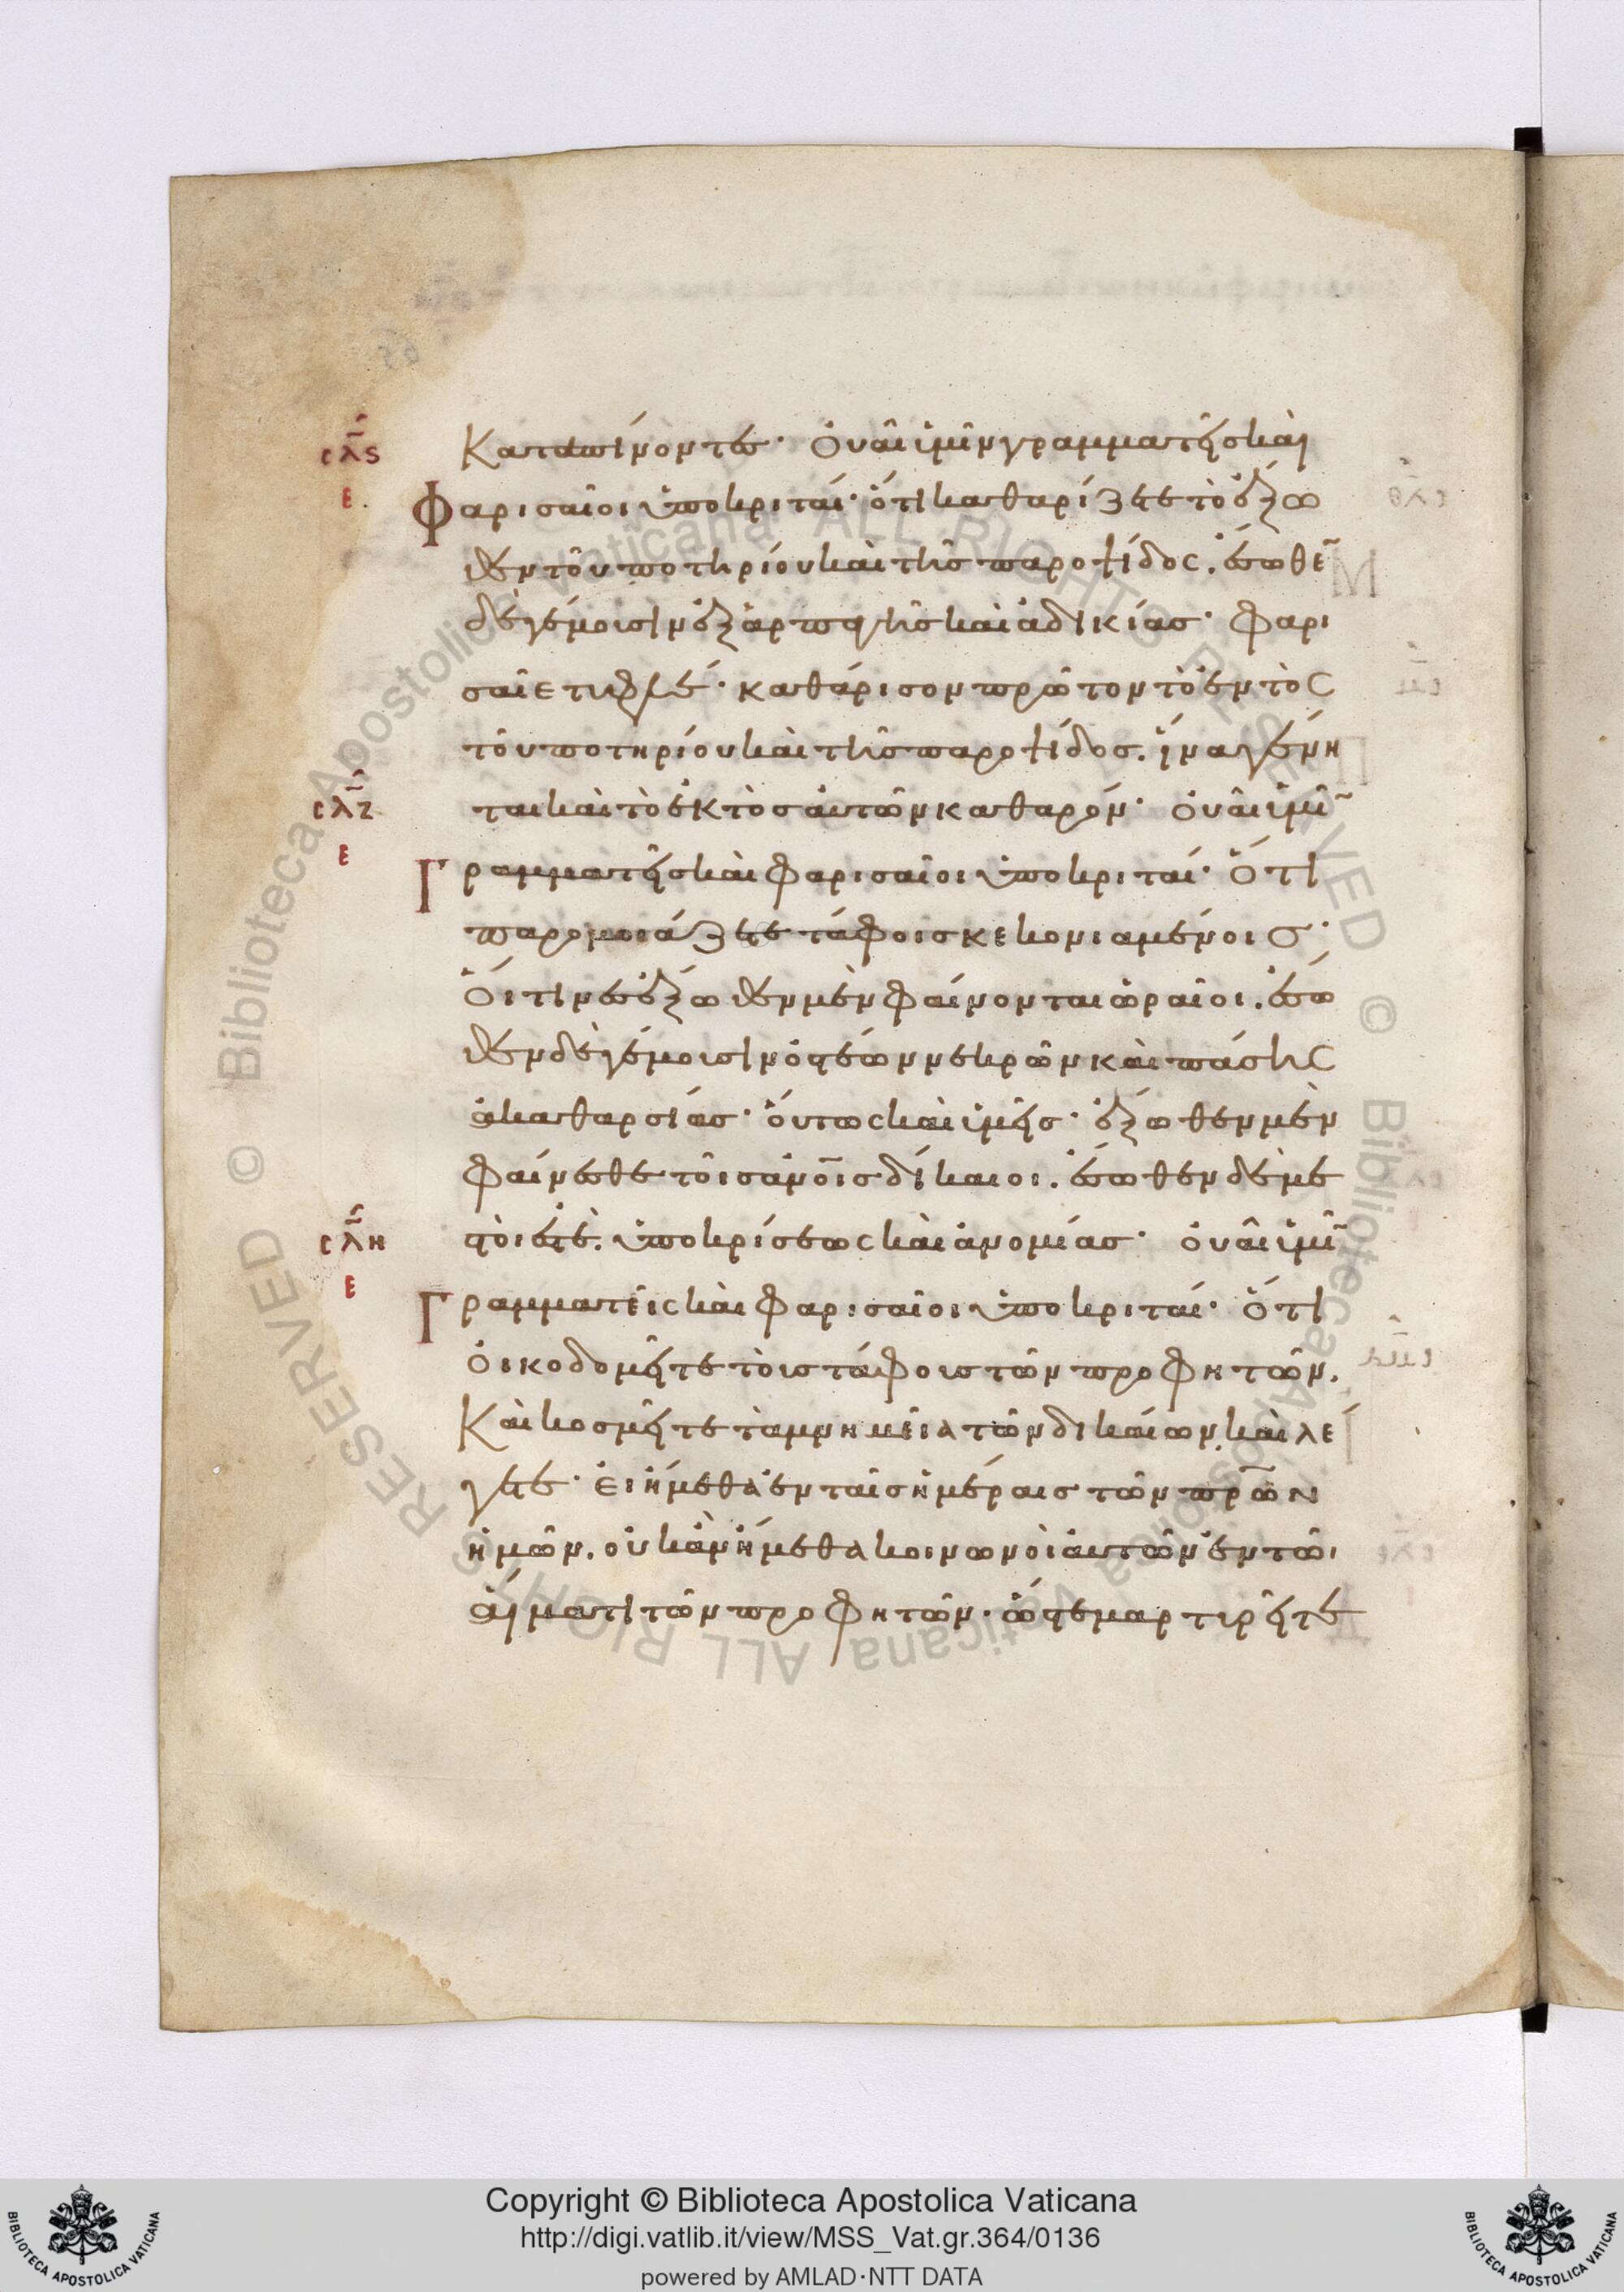 σλς
Καταπίνοντες· Ὀυαὶ ὑμῖν γραμματεῖς καὶ
ε
Φαρισαῖοι ὑποκριταί· ὅτι καθαρίζετε τὸ ἔξω
θεν τοῦ ποτηρίου καὶ τῆς παροψίδος. ἔσωθε̅
δὲ γέμουσιν ἐξ ἁρπαγῆς καὶ ἀδικίας· Φαρι
σαῖε τυφλέ· καθάρισον πρῶτον τὸ ἐντὸς
τοῦ ποτηρίου καὶ τῆς παροψίδος. ἵνα γένη
σλζ
ται καὶ τὸ ἐκτὸς αὐτῶν καθαρόν· ὀυαὶ ὑμῖ̅
ε
Γραμματεῖς καὶ Φαρισαῖοι ὑποκριταί· Ὅτι
παρομοιάζετε τάφοις κεκονιαμένοις·
Ὅιτινες ἔξωθεν μὲν φαίνονται ὡραῖοι. ἔσω
θεν δὲ γέμουσιν ὀστέων νεκρῶν καὶ πάσης
ἀκαθαρσίας· ὅυτως καὶ ὑμεῖς· ἔξωθεν μὲν
φαίνεσθε τοῖς ἀν̅οις δίκαιοι. ἔσωθεν δὲ με
σλη
στοί ἐστὲ. ὑποκρίσεως καὶ ἀνομίας· ὀυαὶ ὑμῖ̅
ε
Γραμματεῖς καὶ Φαρισαῖοι ὑποκριταί· ὅτι
ὀικοδομεῖτε τοὺς τάφους τῶν προφητῶν.
Καὶ κοσμεῖτε τὰ μνημεῖα τῶν δικαίων καὶ λέ
γετε· ἐι ἤμεθα ἐν ταῖς ἡμέραις τῶν πρ̅ων
ἡμῶν. οὐκ ἂν ἤμεθα κοινωνοὶ αὐτῶν ἐν τῶι
αἵματι τῶν προφητῶν. ὥστε μαρτυρεῖτε
Copyright © Biblioteca Apostolica Vaticana
http://digi.vatlib.it/view/MSS_Vat.gr.364/0136
powered by AMLAD·NTT DATA
BIBLIOTECA APOSTOLICA VATICANA
BIBLIOTECA APOSTOLICA VATICANA
© Biblioteca Apostolica Vaticana ALL RIGHTS RESERVED © Biblioteca Apostolica Vaticana ALL RIGHTS RESERVED